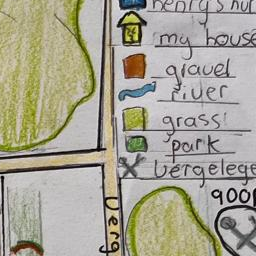 henry's
my house
gravel
river
grass
park
vergelege
900
Verg